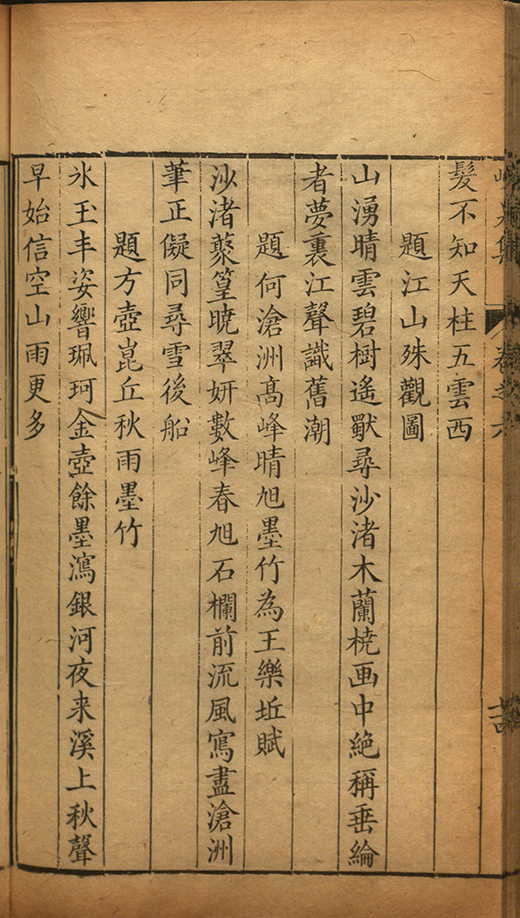 泉集 卷之六
髮不知天柱五雲西
題江山殊觀圖
山湧晴雲碧樹遙獸尋沙渚木蘭橈画中絶稱垂綸
者夢裏江聲識舊潮
題何滄洲高峰晴旭墨竹為王樂坵賦
沙渚藂篁曉翠妍數峰春旭石欄前流風寫盡滄洲
筆正儗同尋雪後船
題方壺崑丘秋雨墨竹
氷玉丰姿響珮珂金壺餘墨瀉銀河夜来溪上秋聲
早始信空山雨更多